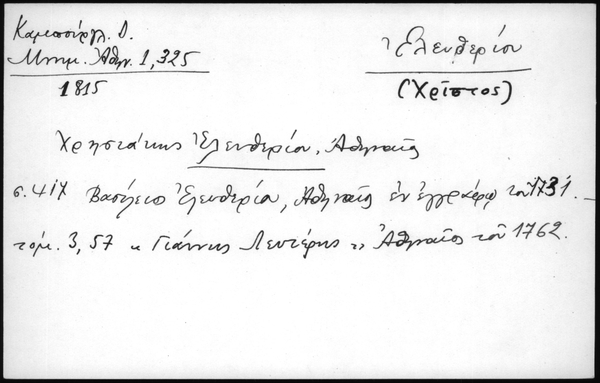 Καμπούρογλ. Δ.
Μνημ. Ἀθην. 1,325
1815
Ἐλευθερίου
(Χρίστος)
Χρηστάκης Ἐλευθερίου, Ἀθηναῖος
σ. 417 Βασίλειος Ἐλευθερίου, Ἀθηναῖος ἐν ἐγγράφῳ τοῦ 1731. –
τόμ. 3, 57 « Γιάννης Λευτέρης » Ἀθηναῖος τοῦ 1762.